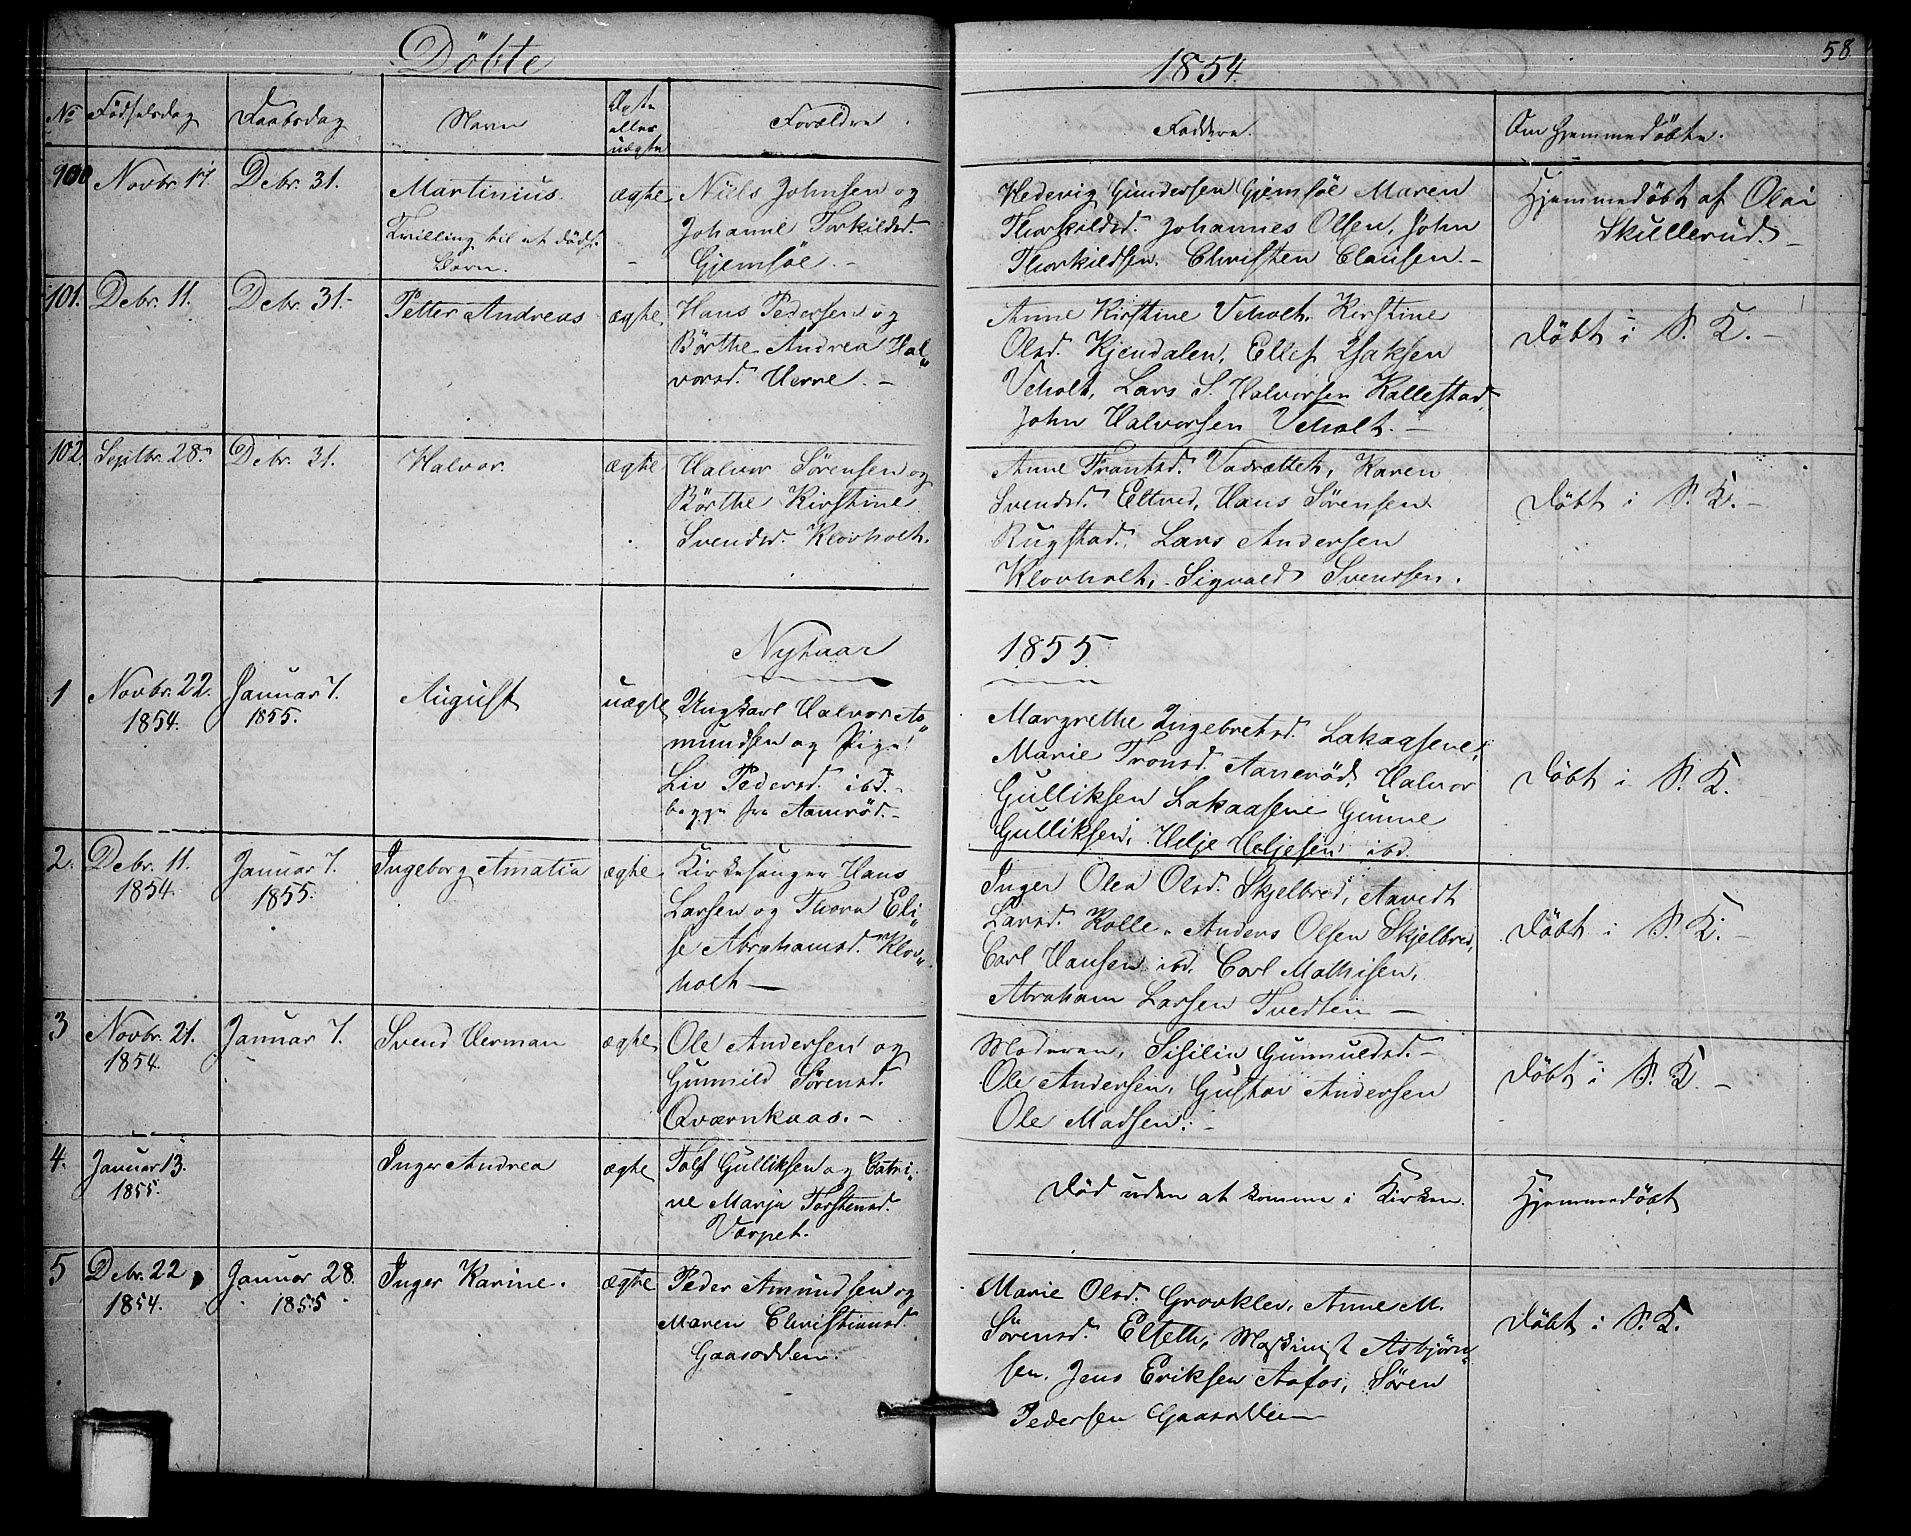 Döbte
1854.
58
No
Födselsdag
Daabsdag
Navn
Ægte
eller
uægte
Forældre.
Faddere.
Om hjemmedöbte.
100
Novbr. 17.
Debr. 31.
Martinius.
Tvilling til et dødf.
Barn.
ægte
Niels Johnsen og
Johanne Torkildsd.
Gjemsöe. -
Hedevig Gundersen Gjemsöe Maren
Thorkildsd. Johannes Olsen, John
Thorkildsen. Christen Clausen. -
Hjemmedöbt af Olai
Skullerud. -
101.
Debr. 11.
Debr. 31. -
Petter Andreas
ægte
Hans Pedersen og
Börthe Andrea Hal„
vorsd. Herre. -
Anne Kirstine Veholt. Kirstine
Olsd. Kjendalen, Ellef Isaksen
Veholt, Lars S. Halvorsen Rallestad
John Halvorsen Veholt. -
Döbt i S. K. -
102.
Septbr. 28.
Debr. 31.
Halvor.
ægte
Halvor Sörensen og
Börthe Kirstine
Svendsd. Klovholt.
Anne Frantsd. Vadrættet, Karen
Svendsd. Eltved, Hans Sörensen
Rugstad, Lars Andersen
Klovholt, Sigvald Svendsen.
Döbt i S. K. -
Nytaar
1855
1
Novbr. 22.
1854.
Januar 7.
1855.
August
uægte
Ungkarl Halvor As„
mundsen og Pige
Liv Pedersd. ibd. -
begge fra Aamröd. -
Margrethe Ingebretsd. Lakaasene,
Marie Tronsd. Aaneröd, Halvor
Gulliksen Lakaasene Gunne
Gulliksen, Helje Heljesen ibd.
Döbt i S. K.
2.
Debr. 11.
1854.
Januar 7.
1855.
Ingeborg Amalia
ægte
Kirkesanger Hans
Larsen og Thora Eli„
se Abrahamsd. Klov„
holt -
Inger Olea Olsd. Skjelbred, Aavedt
Larsd. Rolle. Anders Olsen Skjelbred,
Carl Hansen ibd. Carl Mathisen,
Abraham Larsen Tvedten -
Döbt i S. K. -
3
Novbr. 21.
1854.
Januar 7.
Svend Herman
ægte
Ole Andersen og
Gunnild Sörensd.
Qværnkaas. -
Moderen, Sisilia Gunnuldsd. -
Ole Andersen, Gustav Andersen
Ole Madsen. -
Döbt i S. K. -
4.
Januar 13.
1855.
Inger Andrea
ægte
Tolf Gulliksen og Catri„
ne Marja Torstensd.
Værpet.
Död uden at komme i Kirken.
Hjemmedöbt
5
Debr. 22
1854.
Januar 28.
1855
Inger Karine.
ægte
Peder Amundsen og
Maren Christiansd.
Gaasodden.
Marie Olsd. Grovklev, Anne M.
Sörensd. Elseth, Maskinist Asbjörn„
sen, Jens Eriksen Aafos, Sören
Pedersen Gaasodden
Döbt i S. K.